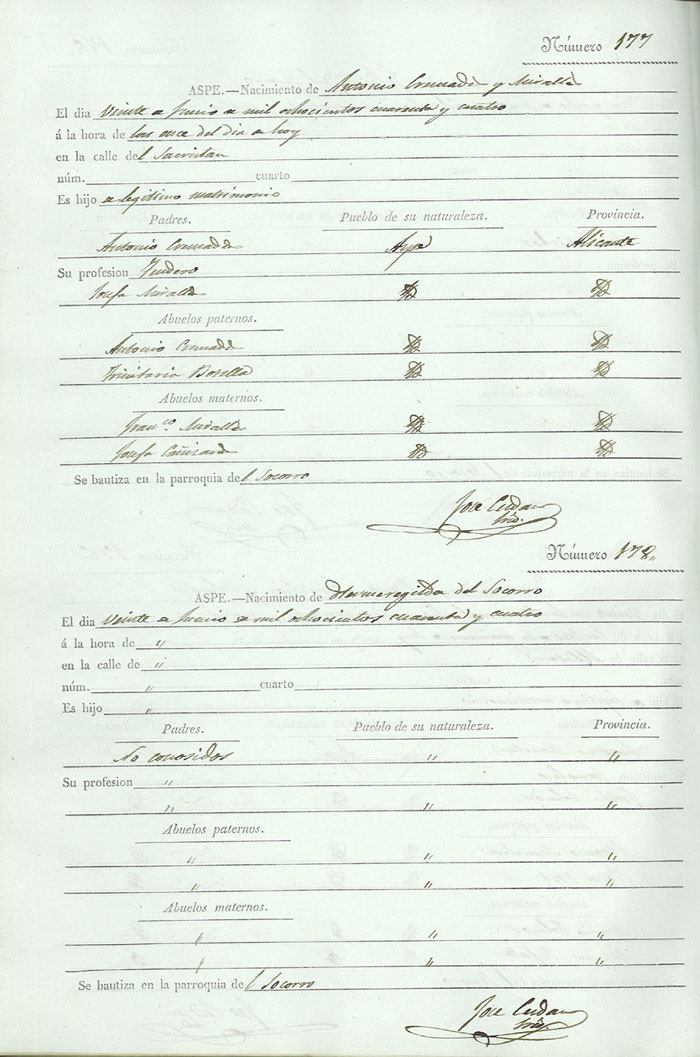 Número 177
ASPE.—Nacimiento de Antonio Cremades y Miralles
El dia veinte de Junio de mil ochocientos cuarenta y cuatro
á la hora de las once del dia de hoy
en la calle del Sacristan
núm. cuarto
Es hijo de legitimo matrimonio
Padres. Pueblo de su naturaleza. Provincia.
Antonio Cremades Aspe Alicante
Su profesion Tendero
Josefa Miralles
Abuelos paternos.
Antonio Cremades
Trinitaria Botella
Abuelos maternos.
Franco Miralles
Josefa Cañizares
Se bautiza en la parroquia del Socorro
Jose
Número 178.
ASPE.—Nacimiento de Hermeregilda del Socorro
El dia veinte de Junio de mil ochocientos cuarenta y cuatro
á la hora de "
en la calle de "
núm. " cuarto
Es hijo "
Padres. Pueblo de su naturaleza. Provincia.
No conosidos " "
Su profesion "
" " "
Abuelos paternos.
" " "
" " "
Abuelos maternos.
" " "
" " "
Se bautiza en la parroquia del Socorro
Jose